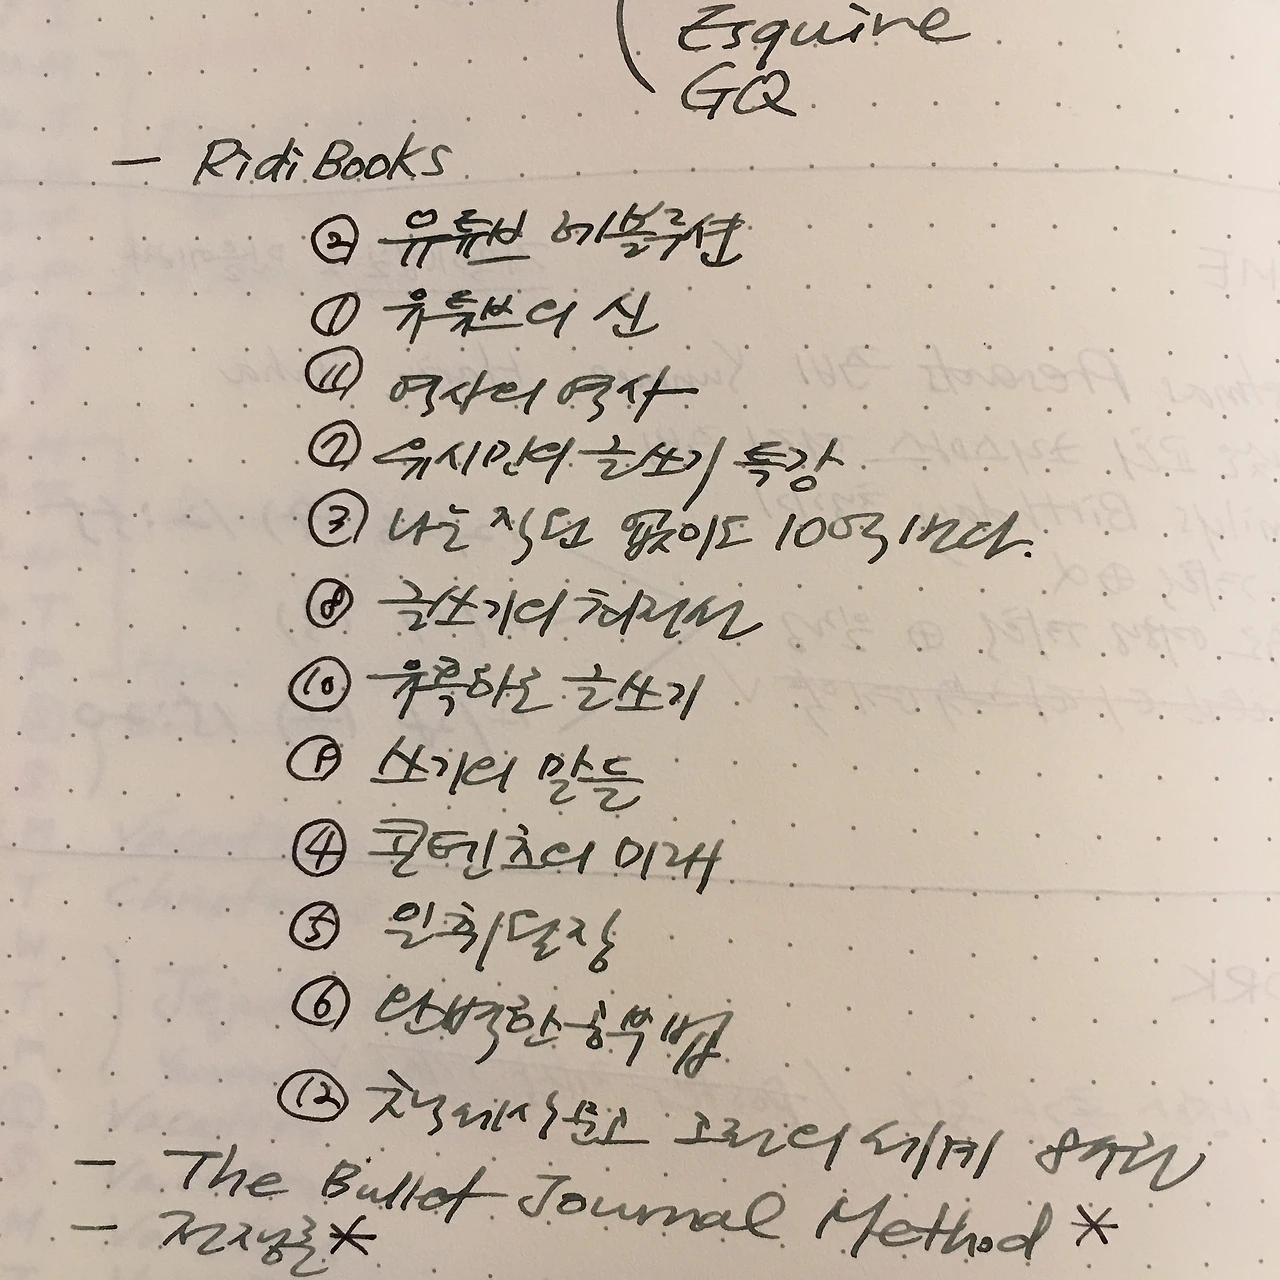 Esquire
GQ
- Ridi Books
② 유튜브 레볼루션
① 유튜브의 신
⑪ 역사의 역사
⑦ 유시민의 글쓰기 특강
③ 나는 직단 없이도 10억 번다.
⑧ 글쓰기의 최전선
⑩ 유혹하는 글쓰기
⑨ 쓰기의 말들
④ 콘텐츠의 미래
⑤ 일취월장
⑥ 완벽한 공부법
⑫ 책세상문고 고전의 세계 8주년
- The Bullet Journal Method *
- 전쟁론 *